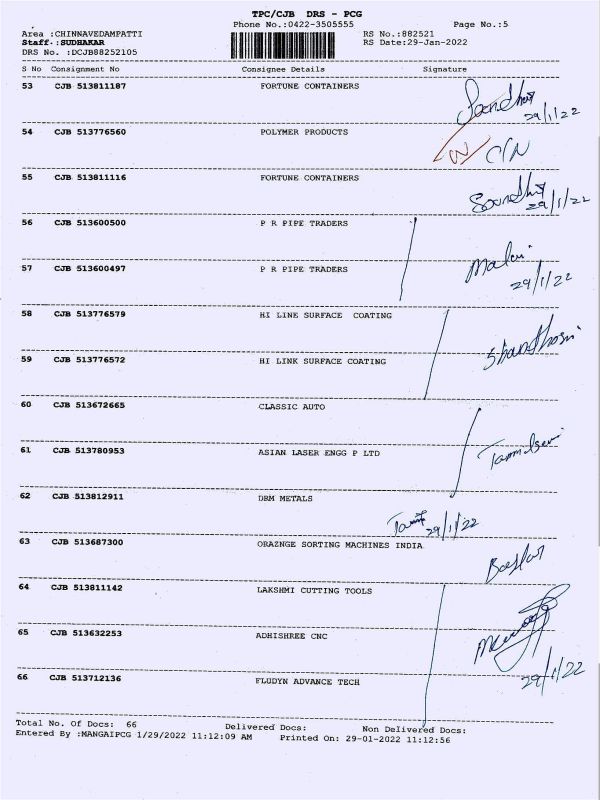 TPC/CJB DRS - PCG
Phone No.:0422-3505555 Page No.:5
Area :CHINNAVEDAMPATTI RS No.:882521
Staff.:SUDHAKAR RS Date:29-Jan-2022
DRS No. :DCJB88252105
S No Consignment No Consignee Details Signature
53 CJB 513811187 FORTUNE CONTAINERS
29/1/22
54 CJB 513776560 POLYMER PRODUCTS
C/N
55 CJB 513811116 FORTUNE CONTAINERS
29/1/22
56 CJB 513600500 P R PIPE TRADERS
57 CJB 513600497 P R PIPE TRADERS
29/1/22
58 CJB 513776579 HI LINE SURFACE COATING
59 CJB 513776572 HI LINK SURFACE COATING
60 CJB 513672665 CLASSIC AUTO
61 CJB 513780953 ASIAN LASER ENGG P LTD
62 CJB 513812911 DBM METALS
29/1/22
63 CJB 513687300 ORAZNGE SORTING MACHINES INDIA
64 CJB 513811142 LAKSHMI CUTTING TOOLS
65 CJB 513632253 ADHISHREE CNC
66 CJB 513712136 FLUDYN ADVANCE TECH
29/1/22
Total No. Of Docs: 66 Delivered Docs: Non Delivered Docs:
Entered By :MANGAIPCG 1/29/2022 11:12:09 AM Printed On: 29-01-2022 11:12:56